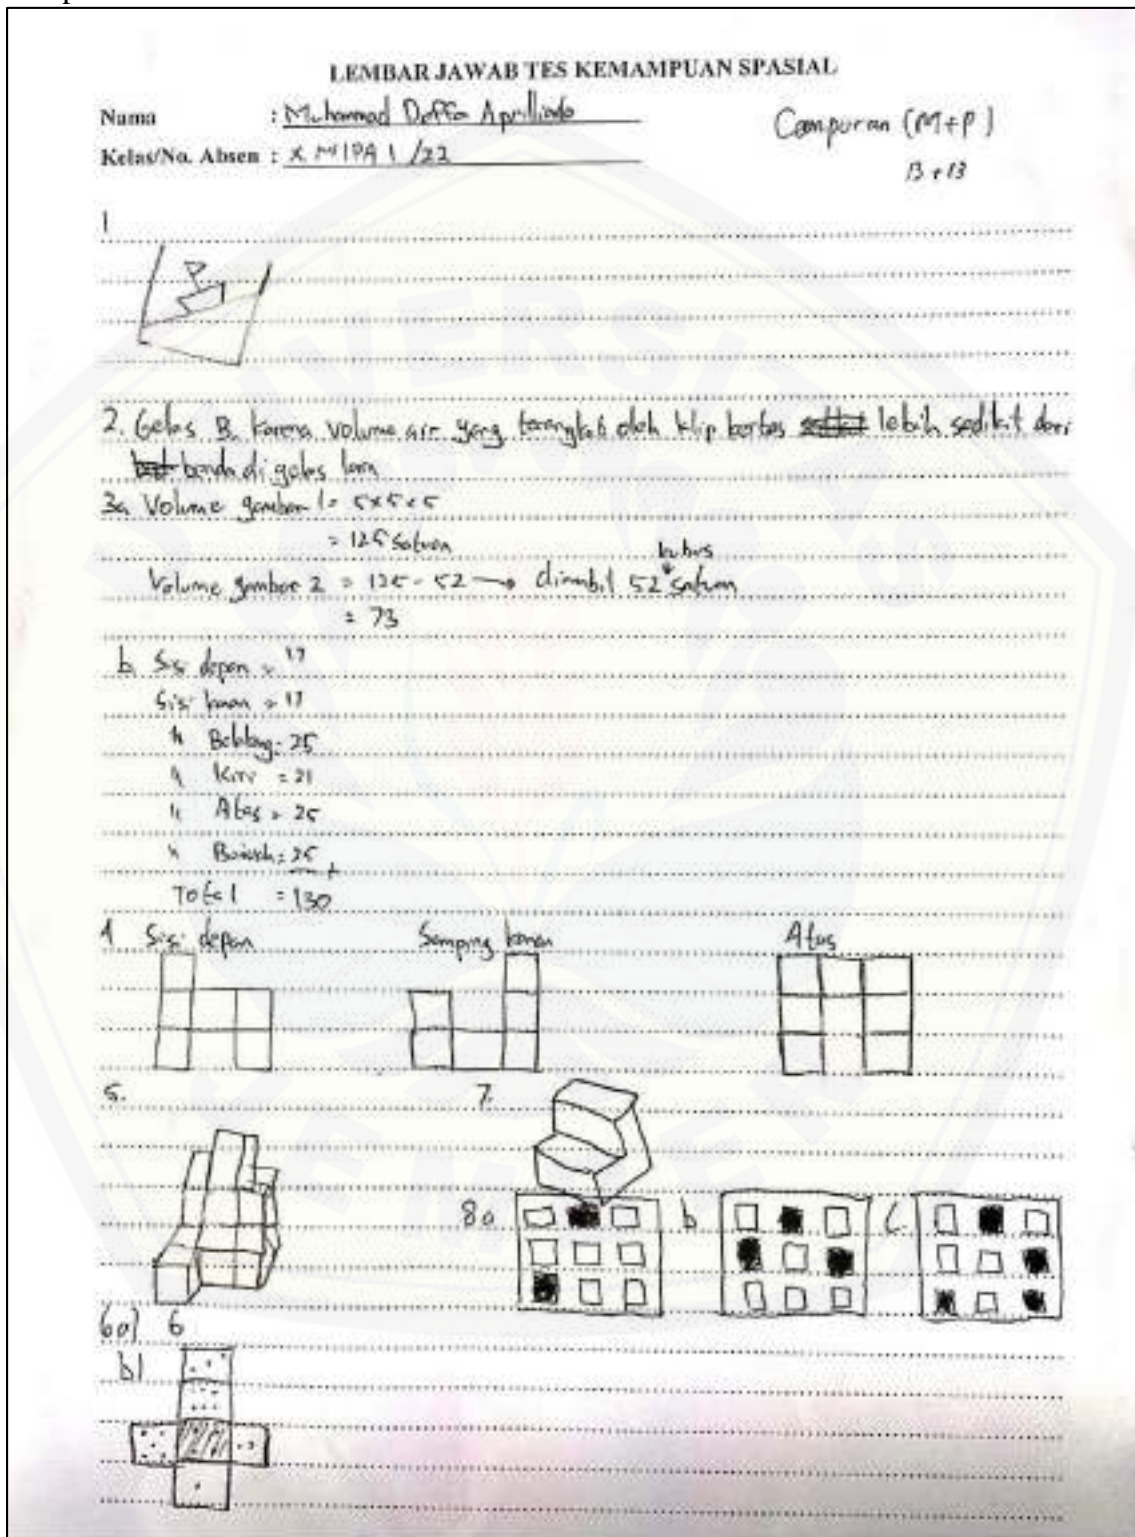 LEMBAR JAWAB TES KEMAMPUAN SPASIAL
Nama : Muhammad Daffa Aprilliado
Campuran (M+P)
Kelas/No. Absen : X MIPA 1 /22
13 + 13
1
2. Gelas B. Karena volume air yang terangkat oleh klip kertas lebih sedikit dari
benda di gelas lain
3a Volume gambar 1 = 5x5x5
= 125 satuan
kubus
Volume gambar 2 = 125 - 52 → diambil 52 satuan
= 73
b. Sisi depan = 17
Sisi kanan = 17
" Belakang = 25
" Kiri = 21
" Atas = 25
" Bawah = 25 +
Total = 130
4 Sisi depan Samping kanan Atas
5. 7.
8a b c.
6a) 6
b)